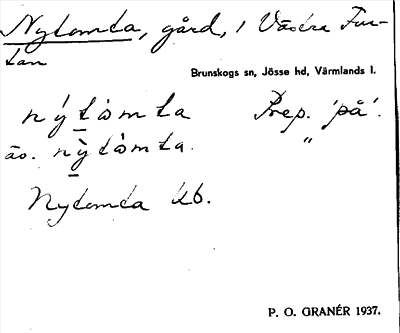 Nytomta, gård, i Västra Fur-
tan
Brunskogs sn, Jösse hd, Värmlands l.
nýtòmta Prep. 'på'.
äo. nỳtòmta. "
Nytomta kb.
P. O. GRANÉR 1937.